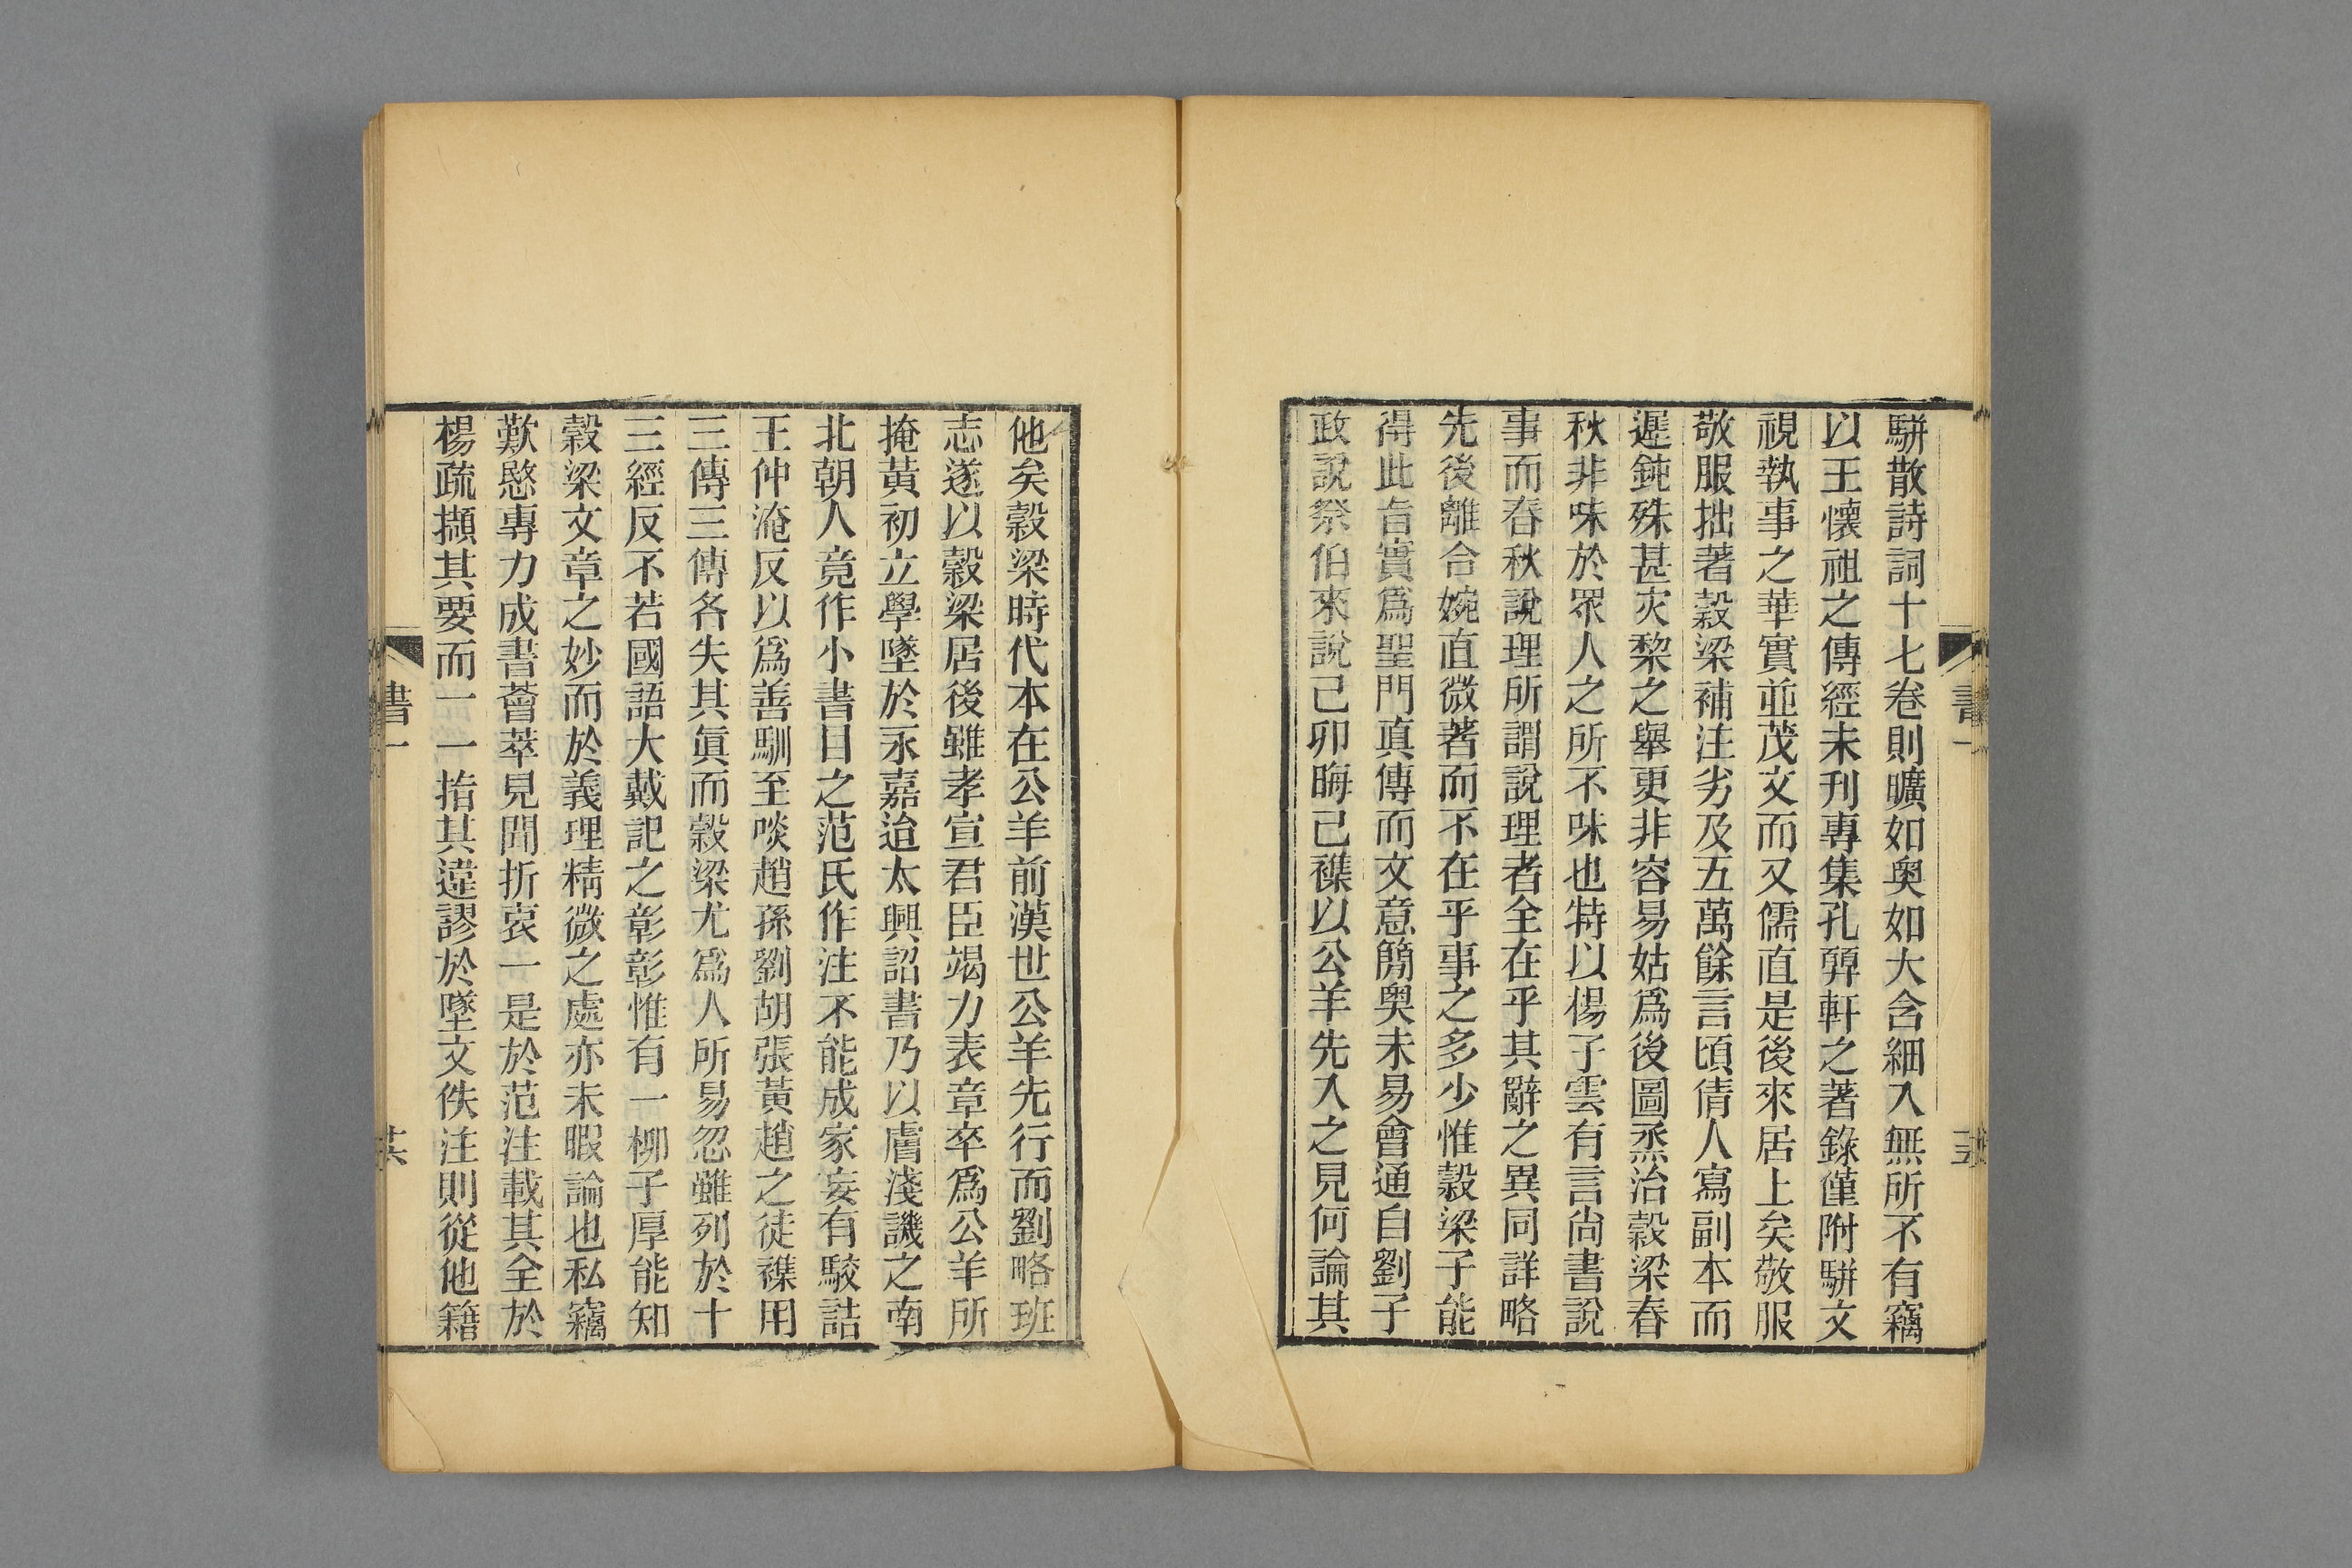 駢散詩詞十七卷則曠如奥如大含細入無所不有竊
以王懷祖之傳經未刊專集孔顨軒之著錄僅附駢文
視執事之華實並茂文而又儒直是後來居上矣敬服
敬服拙著穀梁補注劣及五萬餘言頃倩人寫副本而
遲鈍殊甚灾棃之舉更非容易姑爲後圖烝治穀梁春
秋非味於眾人之所不味也特以楊子雲有言尙書說
事而春秋說理所謂說理者全在乎其辭之異同詳略
先後離合婉直微著而不在乎事之多少惟穀梁子能
得此旨實爲聖門真傳而文意簡奥未易會通自劉子
政說祭伯來說己卯晦已襍以公羊先入之見何論其
他矣穀梁時代本在公羊前漢世公羊先行而劉略班
志遂以穀梁居後雖孝宣君臣竭力表章卒爲公羊所
掩黃初立學墜於永嘉迨太興詔書乃以膚淺譏之南
北朝人竟作小書目之范氏作注不能成家妄有駮詰
王仲淹反以爲善馴至啖趙孫劉胡張黃趙之徒襍用
三傳三傳各失其眞而穀梁尤爲人所易忽雖列於十
三經反不若國語大戴記之彰彰惟有一柳子厚能知
穀梁文章之妙而於義理精微之處亦未暇論也私竊
歎愍專力成書薈萃見聞折衷一是於范注載其全於
楊疏擷其要而一一指其違謬於墜文佚注則從他籍
書一